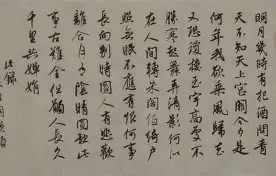 明月幾時有把酒問青
天不知天上宮闕今夕是
何年我欲乘風歸去
又恐瓊樓玉宇高處不
勝寒起舞弄清影何似
在人間轉朱閣低綺戶
照無眠不應有恨何事
長向別時圓人有悲歡
離合月有陰晴圓缺此
事古難全但願人長久
千里共嬋娟